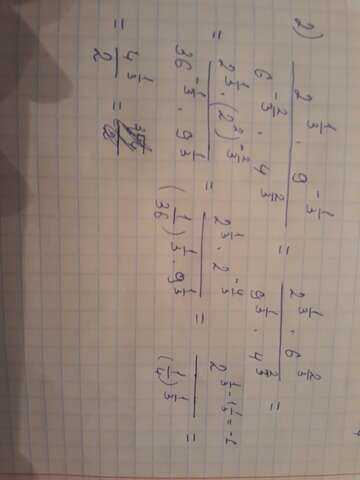 2) \frac{2^{\frac{1}{3}} \cdot 9^{-\frac{1}{3}}}{6^{-\frac{2}{3}} \cdot 4^{\frac{2}{3}}} = \frac{2^{\frac{1}{3}} \cdot 6^{\frac{2}{3}}}{9^{\frac{1}{3}} \cdot 4^{\frac{2}{3}}} =
= \frac{2^{\frac{1}{3}} \cdot (2^2)^{-\frac{2}{3}}}{36^{-\frac{1}{3}} \cdot 9^{\frac{1}{3}}} = \frac{2^{\frac{1}{3}} \cdot 2^{-\frac{4}{3}}}{(\frac{1}{36})^{\frac{1}{3}} \cdot 9^{\frac{1}{3}}} = \frac{2^{\frac{1}{3} - 1\frac{1}{3} = -1}}{(\frac{1}{4})^{\frac{1}{3}}} =
= \frac{4^{\frac{1}{3}}}{2} =